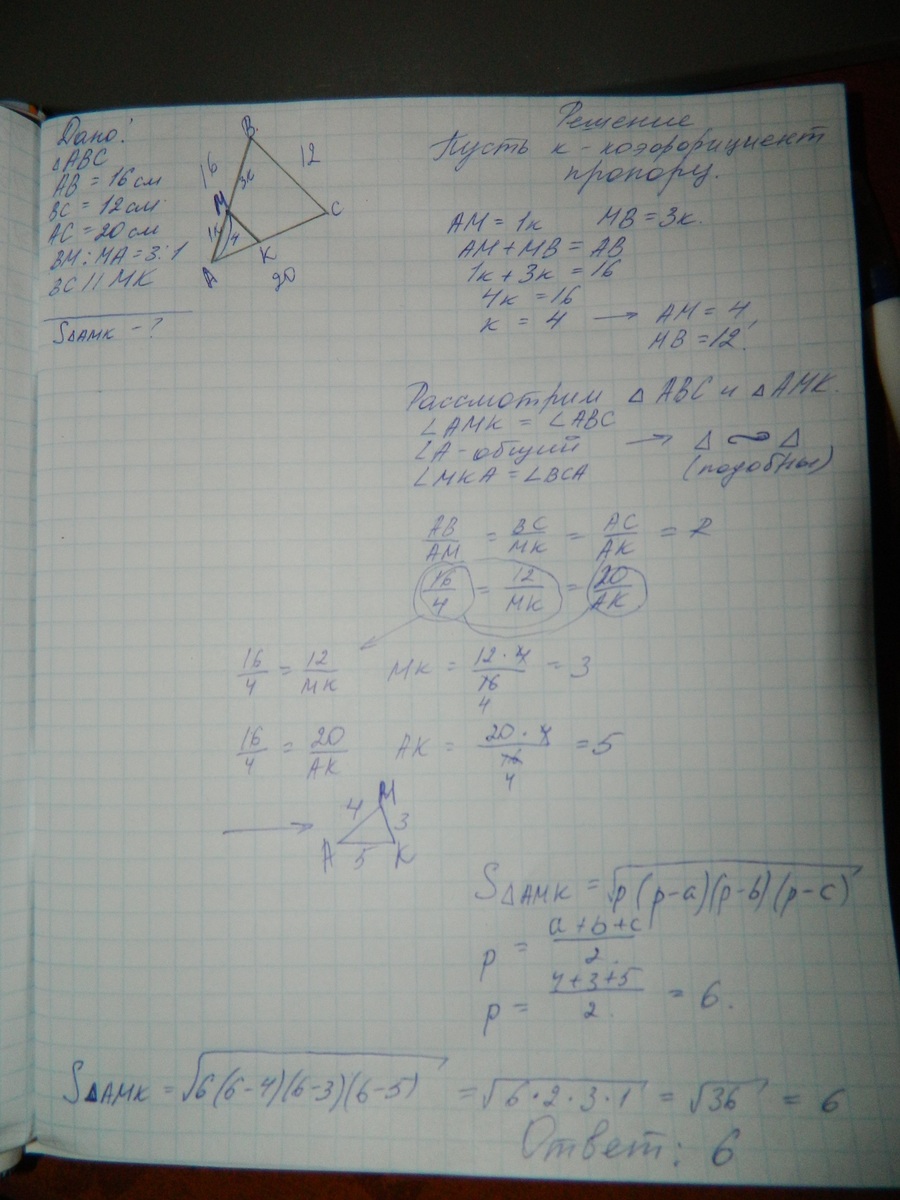 Дано:
△ABC
AB = 16 см
BC = 12 см
AC = 20 см
BM : MA = 3:1
BC || MK
S△AMK - ?
B
16
3к
12
M
C
1к
4
K
A
20
Решение
Пусть к - коэффициент
пропорц.
AM = 1к MB = 3к.
AM + MB = AB
1к + 3к = 16
4к = 16
к = 4 → AM = 4,
MB = 12.
Рассмотрим △ABC и △AMK.
∠AMK = ∠ABC
∠A - общий → △ ∾ △
∠MKA = ∠BCA (подобны)
AB/AM = BC/MK = AC/AK = R
16/4 = 12/MK = 20/AK
16/4 = 12/MK MK = 12·4/16 = 3
4
16/4 = 20/AK AK = 20·4/16 = 5
4
→ 4 M 3
A 5 K
S△AMK = √p(p-a)(p-b)(p-c)
p = a+b+c/2.
p = 4+3+5/2 = 6.
S△AMK = √6(6-4)(6-3)(6-5) = √6·2·3·1 = √36 = 6
Ответ: 6